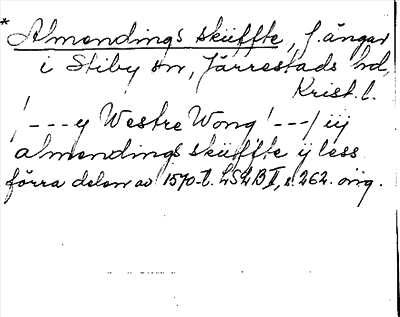 * Almendings skiifte, f. ångar
i Stiby sn, Järrestads hd,
Krist. l.
! --- y Westre Wong! --- / iij
almendings skiifte ij less
förra delen av 1570-t. LSLB II, s. 262. orig.